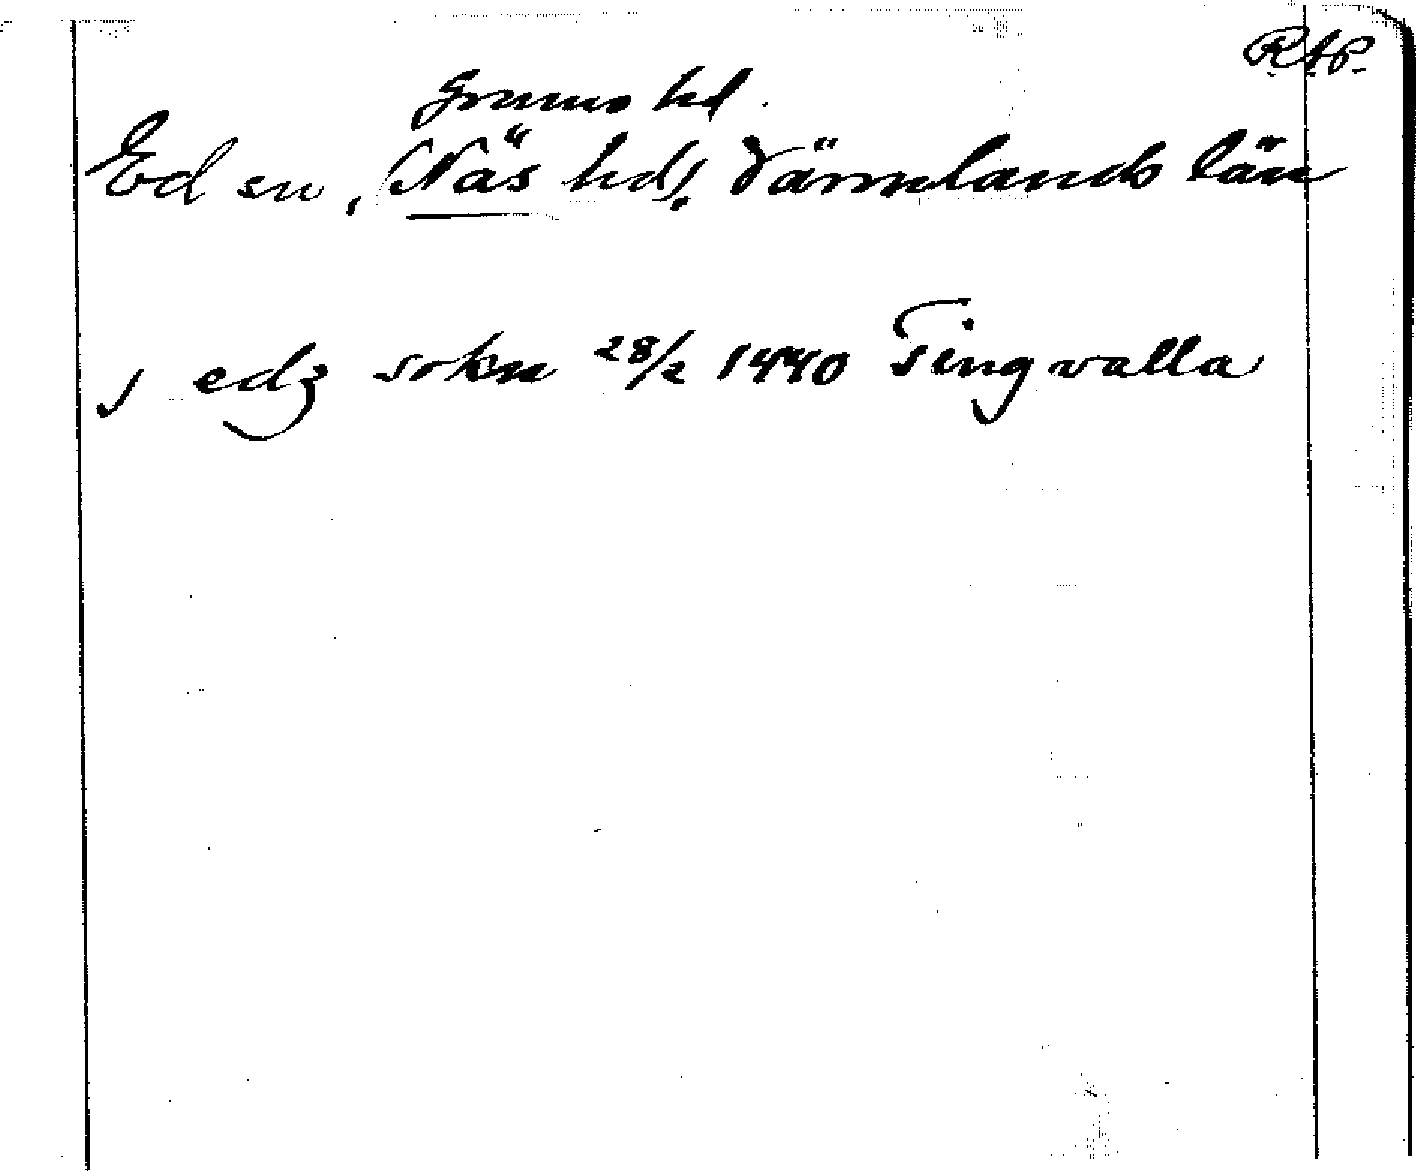 RAP.
Grums hd.
Ed sn, (Näs hd), Värmlands län
J edz sokn 28/2 1440 Tingvalla